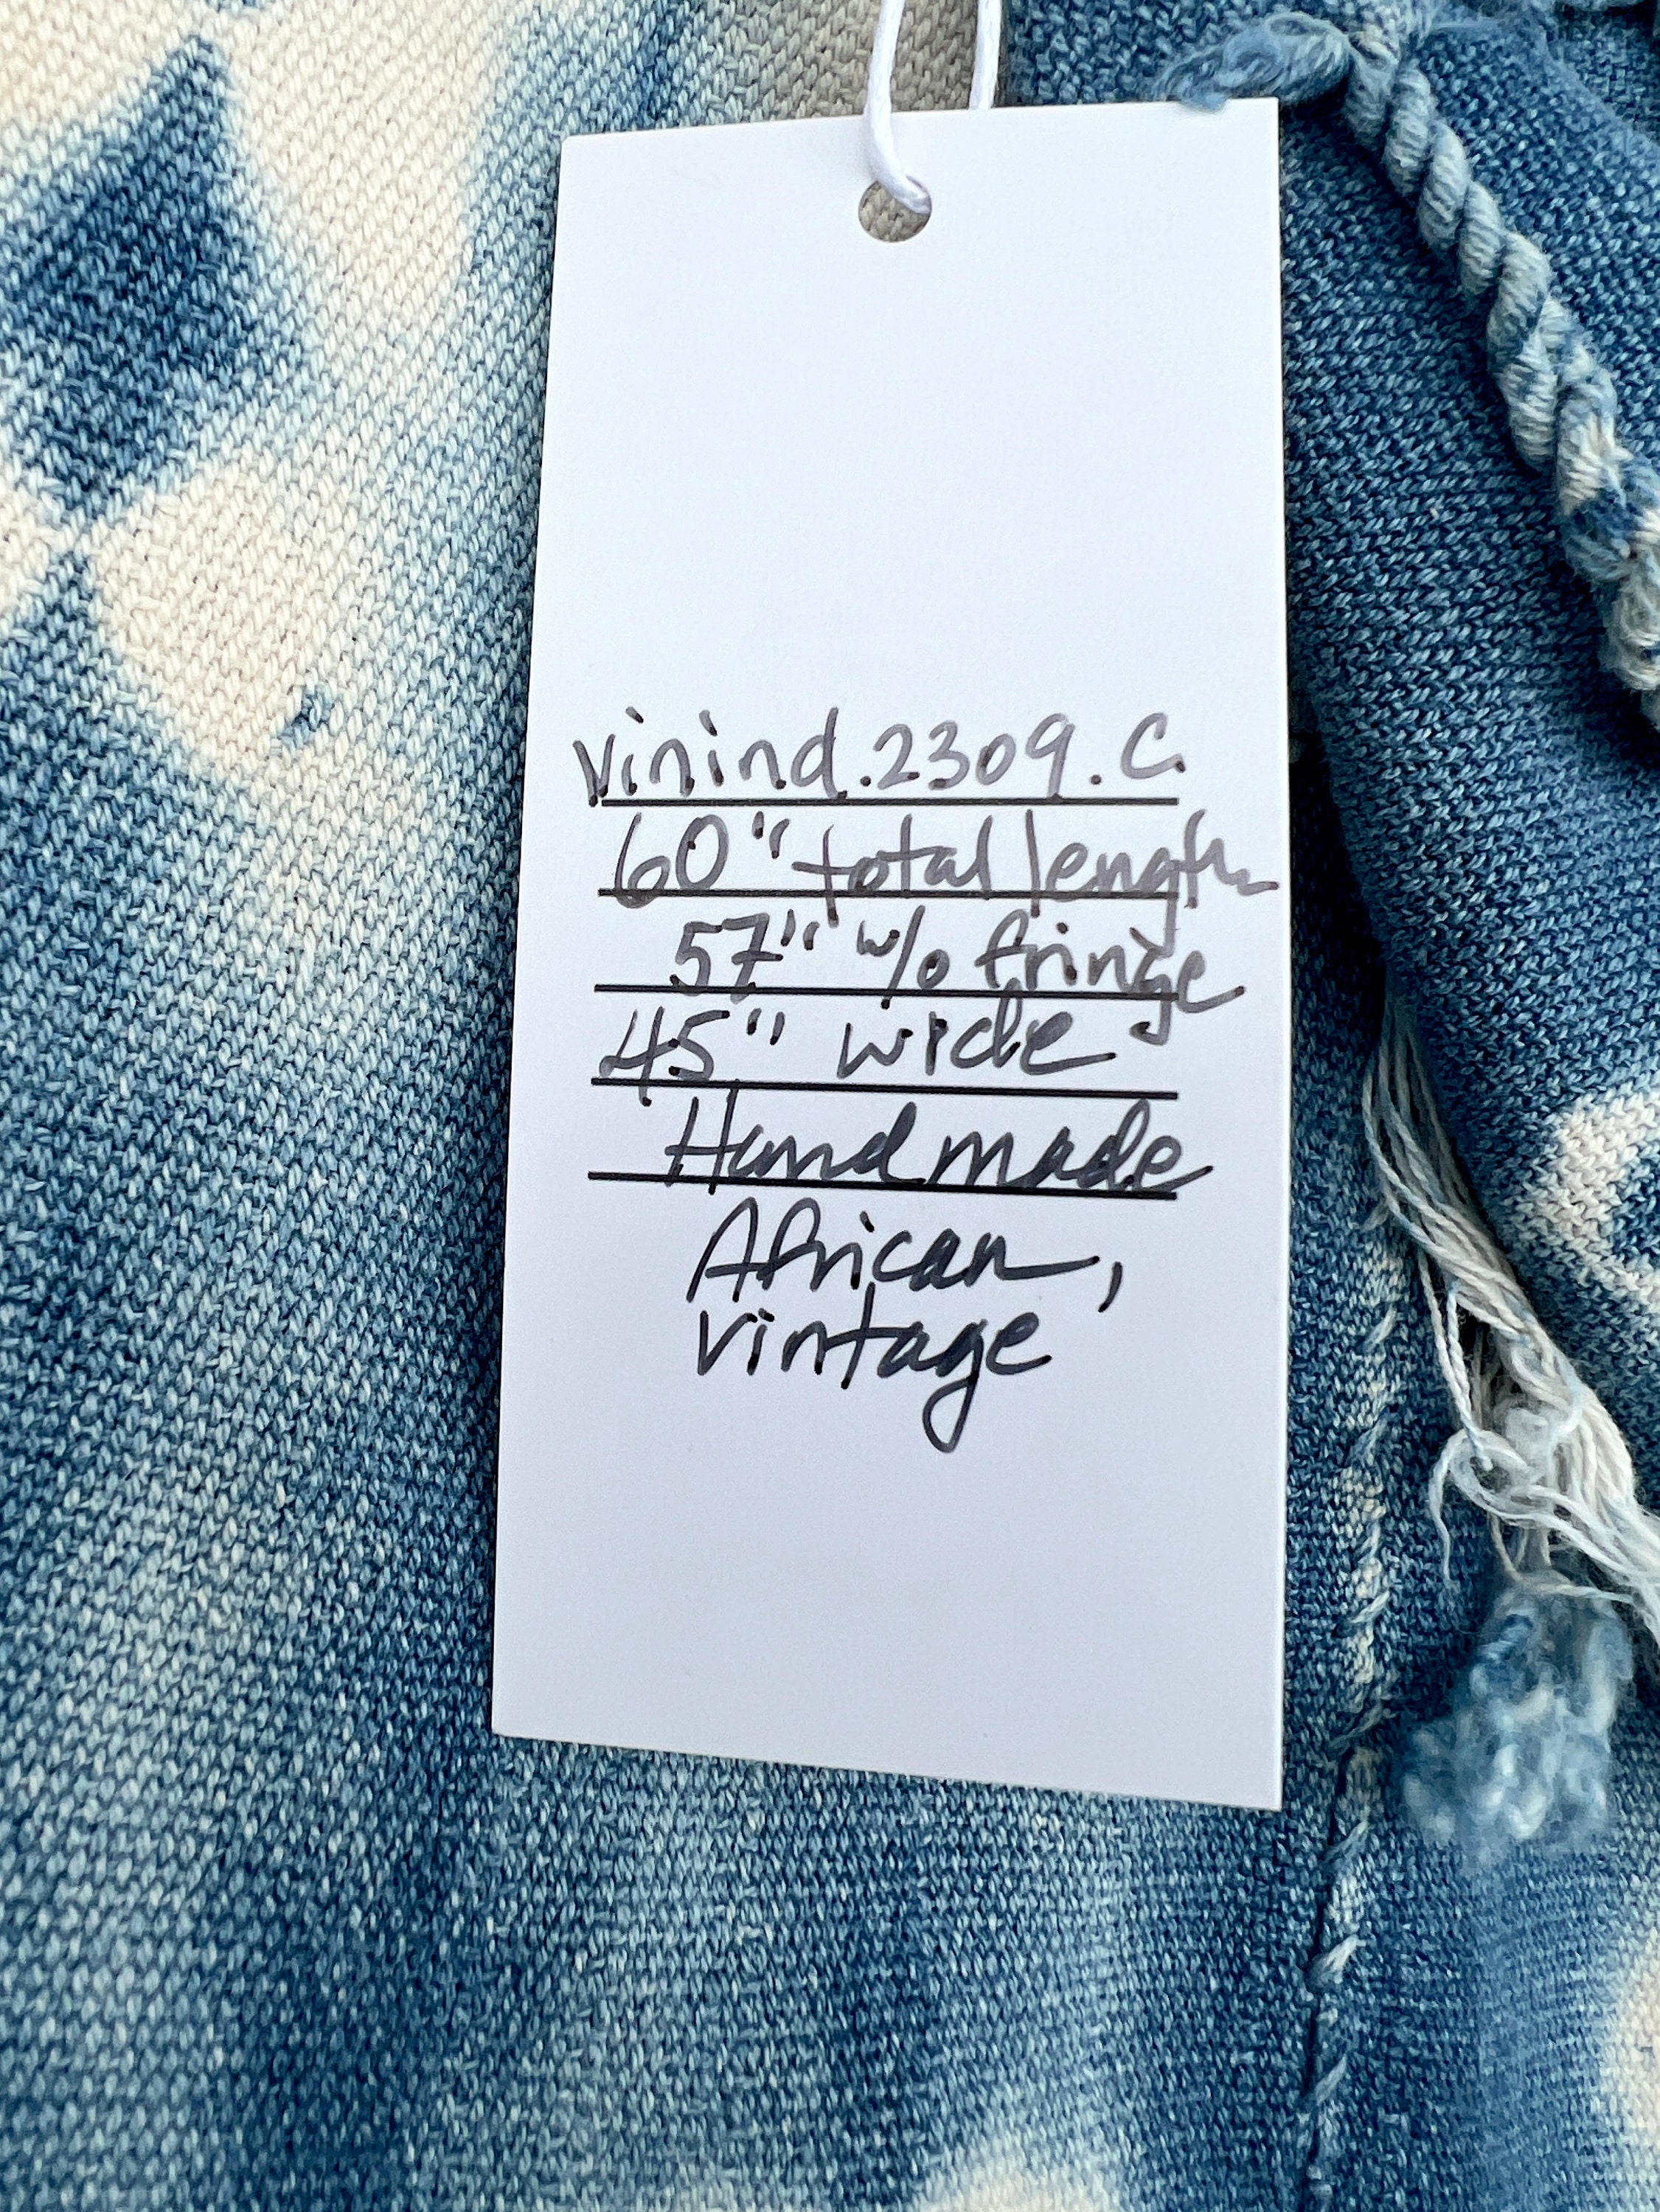 Vinind.2309.C
60" total length
57" w/o fringe
45" wide
Handmade
African,
Vintage